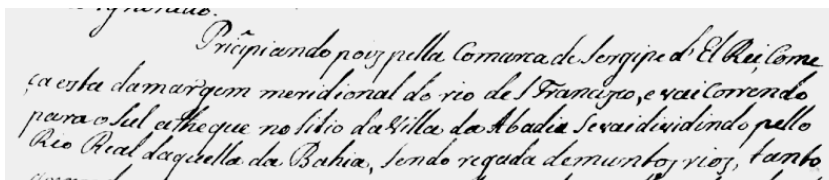 Prinçipiando pois pella Comarca de Sergipe d'El Rei, Come
ça esta da margem meridional do rio de S Francisco, e vai Correndo
para o Sul athe que no sitio da Villa da Abadia Se vai dividindo pello
Rio Real daquella da Bahia, Sendo regada de muntos rios, tanto